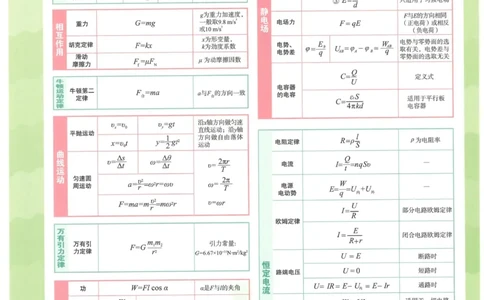 相互作用
重力
G=mg
g为重力加速度,
一般取9.8 m/s²
或10 m/s²
胡克定律
F=kx
x为形变量,
k为劲度系数
滑动
摩擦力
Ff=μFN
μ为动摩擦因数
牛顿运动定律
牛顿第二
定律
F合=ma
a与F合的方向一致
曲线运动
平抛运动
vx=v0
vy=gt
x=v0t
y=1/2 gt²
沿x轴方向做匀速
直线运动; 沿y轴
方向做自由落体
运动
匀速圆
周运动
v=Δs/Δt
ω=Δθ/Δt
v=2πr/T
a=v²/r=ω²r=ωv
ω=2π/T
F=ma=mv²/r=mω²r
v=ωr
万有引力定律
万有引力
定律
F=G m1m2/r²
引力常量:
G=6.67×10⁻¹¹N·m²/kg²
功
W=Fl cos α
α是F与l的夹角
静电场
电场力
F=qE
F与E的方向相同
(正电荷)或相反
(负电荷)
电势、
电势差
φ=Ep/q
Uab=φa-φb=Wab/q
电势与零势面的选
取有关, 电势差与
零势面的选取无关
电容器
的电容
C=Q/U
定义式
C=εS/4πkd
适用于平行板
电容器
恒定电流
电阻定律
R=ρ l/S
ρ为电阻率
电流
I=Q/t=nqSv
—
电源
电动势
E=W/q=U内+U外
—
欧姆定律
I=U/R
部分电路欧姆定律
I=E/R+r
闭合电路欧姆定律
路端电压
U=E
断路时
U=0
短路时
U=IR=E-U内=E-Ir
通路时